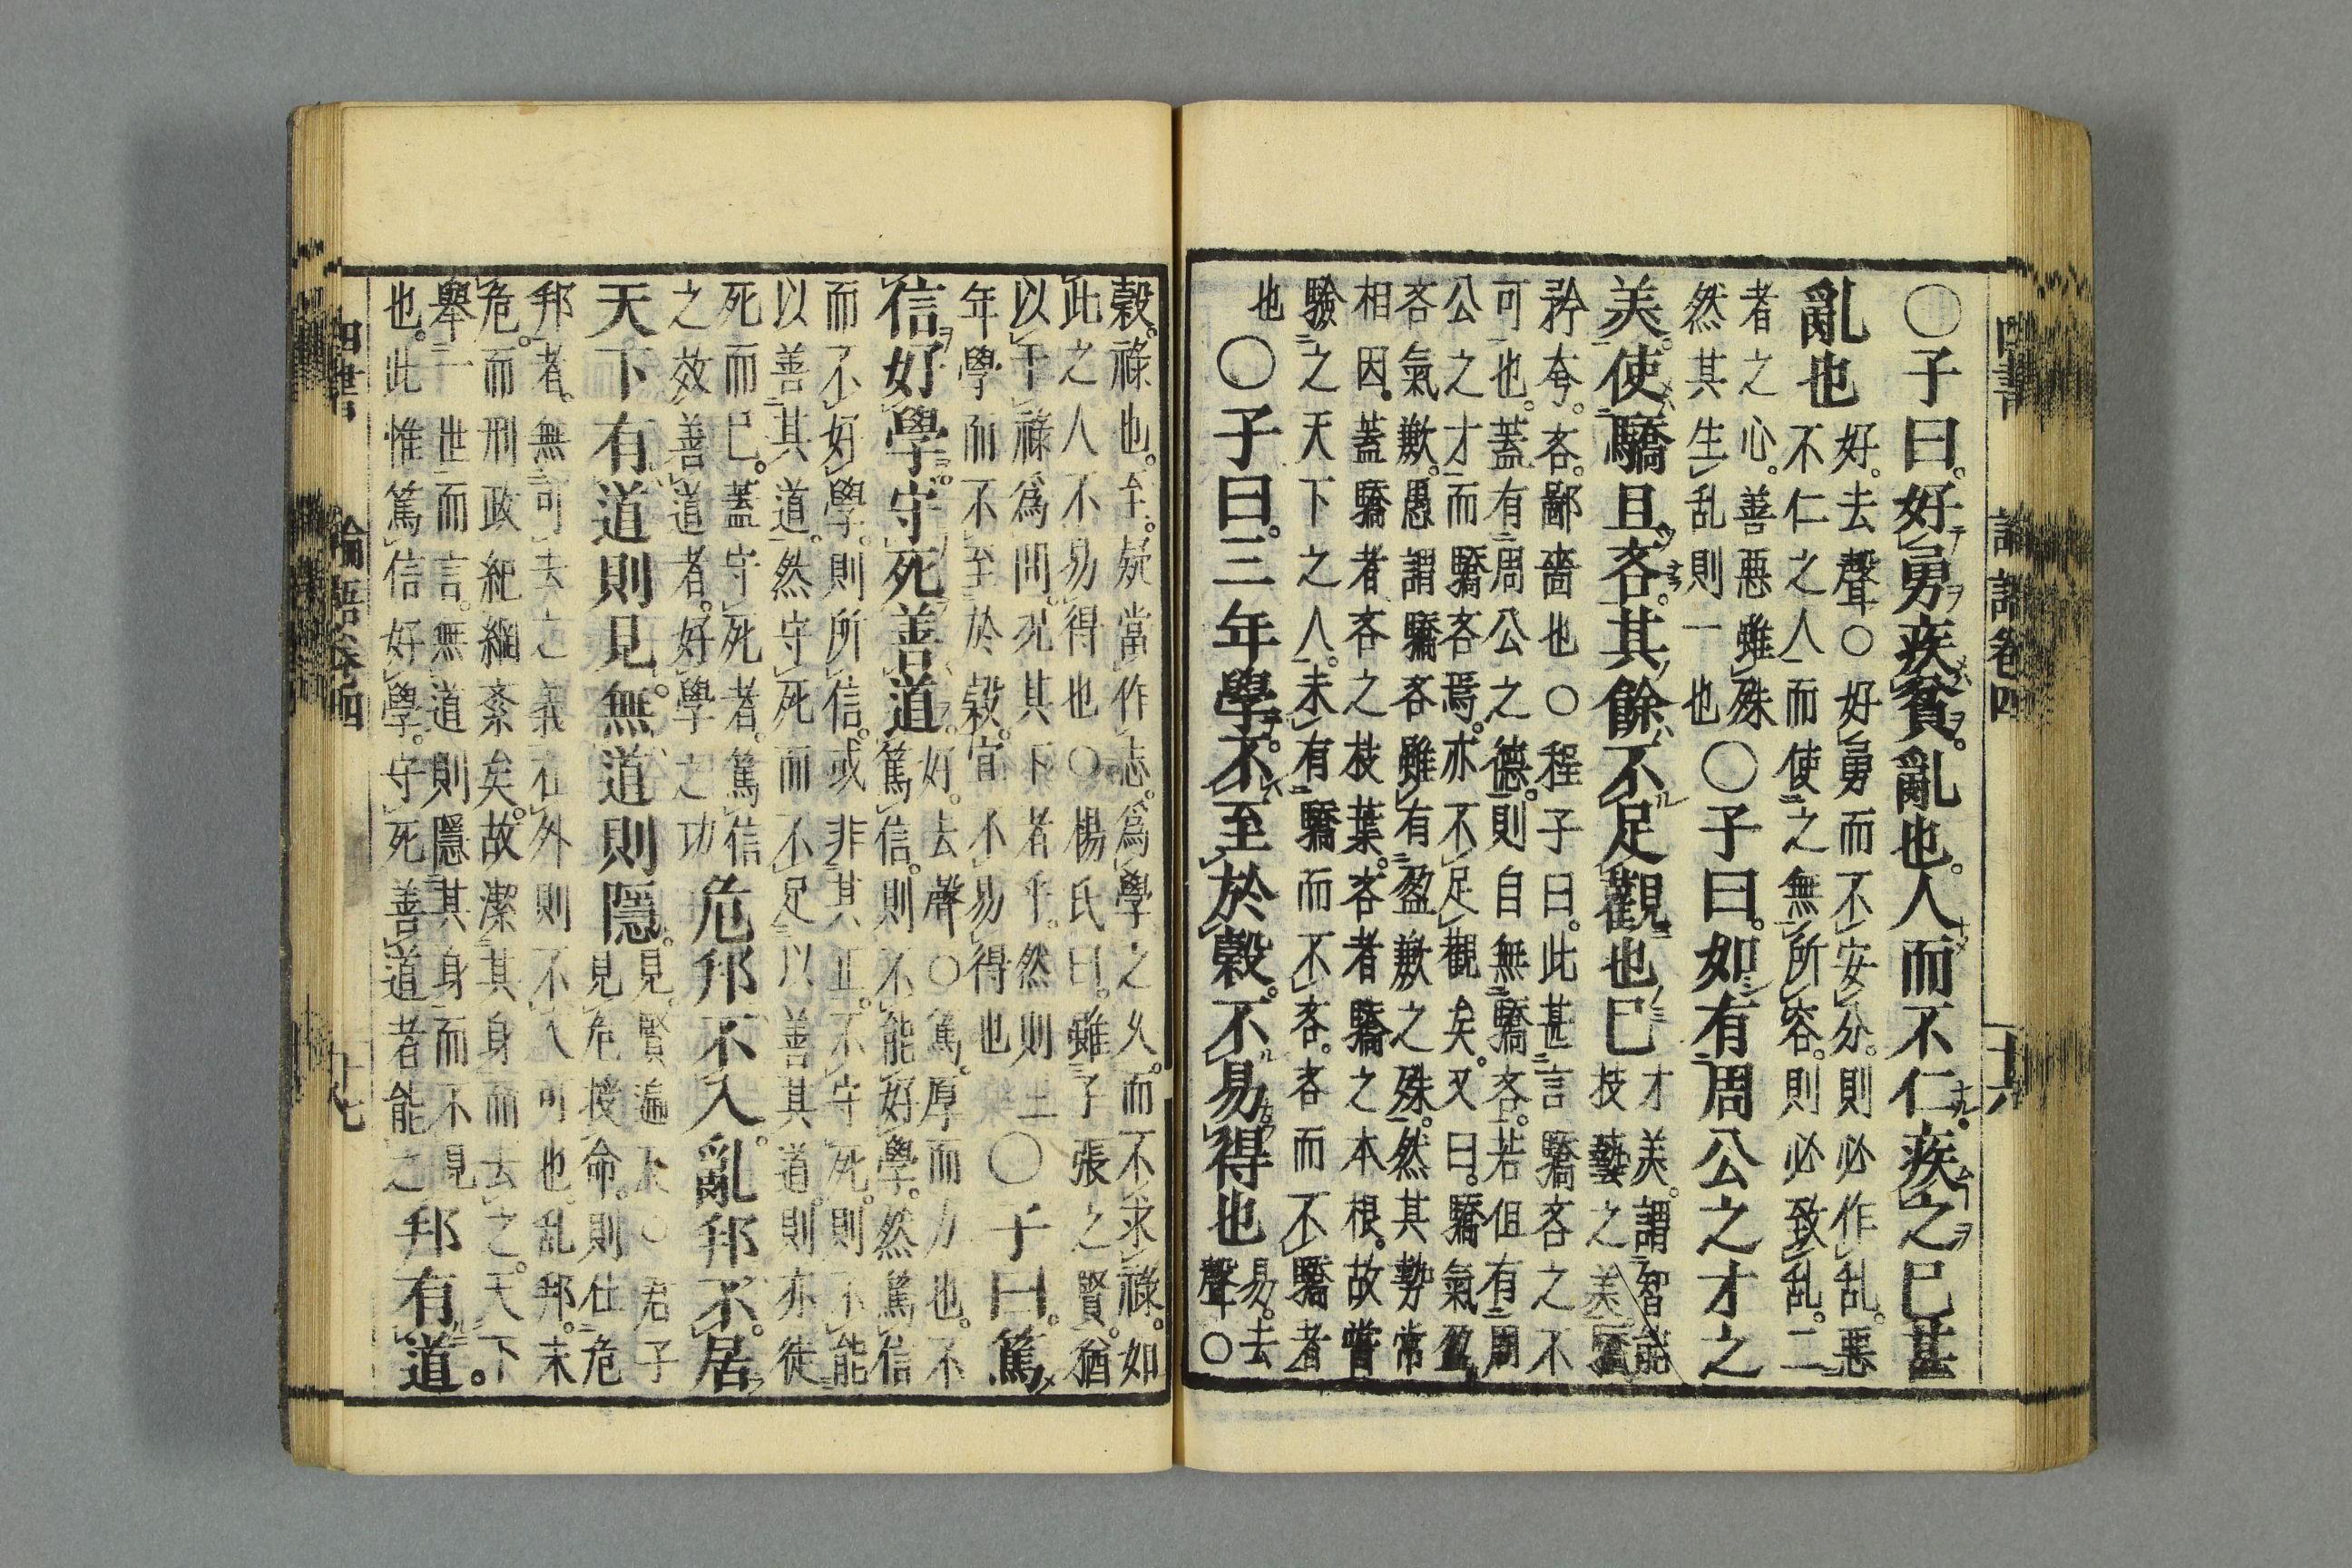 四書 論語卷四 十六
〇子曰。好勇疾貧。亂也。人而不仁。疾之已甚
亂也
好。去聲〇好勇而不安分。則必作乱。惡
不仁之人而使之無所容。則必致乱。二
者之心。善惡雖殊
然其生乱則一也
〇子曰。如有周公之才之
美。使驕且吝。其餘不足觀也已
才美。謂智能
技藝之美。驕
矜夸。吝。鄙嗇也〇程子曰。此甚言驕吝之不
可也。蓋有周公之德。則自無驕吝。若但有周
公之才而驕吝焉。亦不足觀矣。又曰。驕氣盈
吝氣歉。愚謂驕吝雖有盈歉之殊。然其勢常
相因。蓋驕者吝之枝葉。吝者驕之本根。故嘗
驗之天下之人。未有驕而不吝。吝而不驕者
也
〇子曰。三年學。不至於穀。不易得也
易。去
聲〇
穀。祿也。至。疑當作志。爲學之久。而不求祿。如
此之人不易得也〇楊氏曰。雖子張之賢。猶
以干祿爲問。況其下者乎。然則三
年學而不至於穀。宜不易得也
〇子曰。篤
信好學。守死善道
好。去聲〇篤。厚而力也。不
篤信。則不能好學。然篤信
而不好學。則所信。或非其正。不守死。則不能
以善其道。然守死而不足以善其道。則亦徒
死而已。蓋守死者。篤信
之效。善道者。好學之功
危邦不入。亂邦不居
天下有道則見。無道則隱
見。賢遍反〇君子
見危授命。則仕危
邦者。無可去之義。在外則不入可也。乱邦。未
危。而刑政紀綱紊矣。故潔其身而去之。天下
舉一世而言。無道則隱其身而不見
也。此惟篤信好學。守死善道者能之
邦有道。
四書 論語卷四 十七